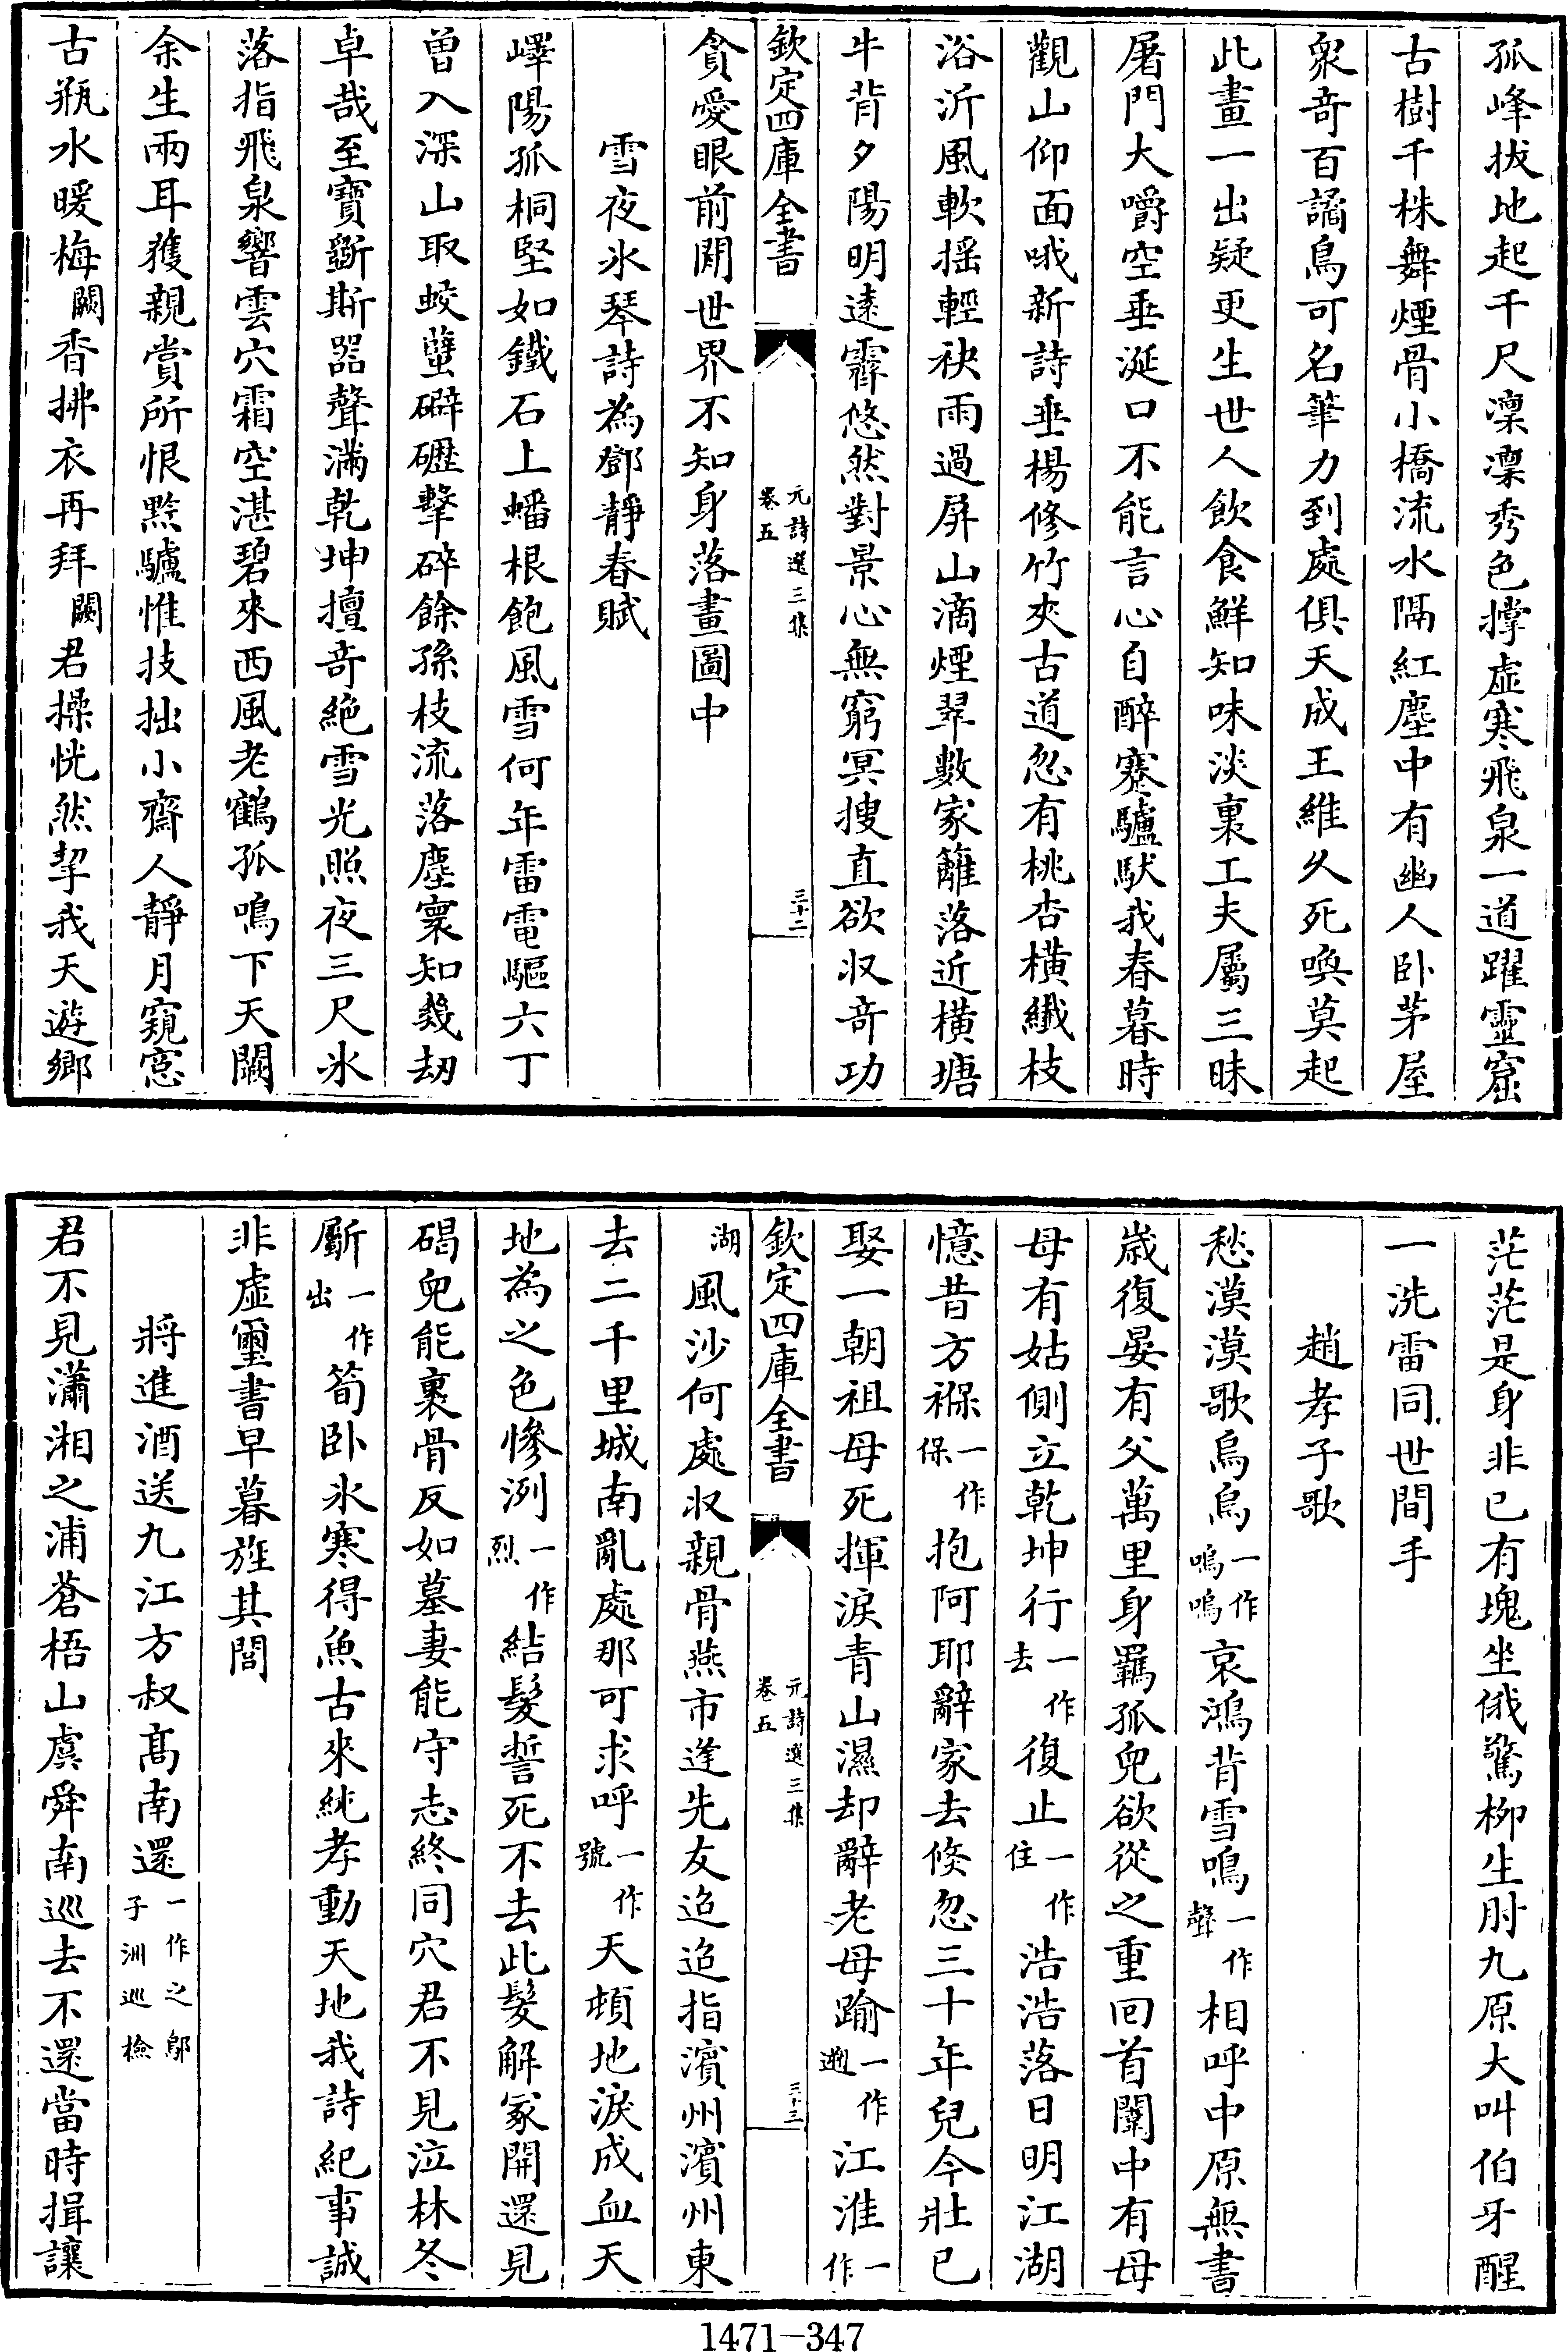 孤峰拔地起千尺凜凜秀色撑虛寒飛泉一道躍靈窟
古樹千株舞煙骨小橋流水隔紅塵中有幽人卧茅屋
衆竒百譎烏可名筆力到處俱天成王維久死喚莫起
此畫一出疑更生世人飲食鮮知味淡裏工夫屬三昧
屠門大嚼空垂涎口不能言心自醉蹇驢馱我春暮時
觀山仰面哦新詩垂楊修竹夾古道忽有桃杏橫纎枝
浴沂風軟搖輕袂雨過屏山滴煙翠數家籬落近橫塘
牛背夕陽明逺霽悠然對景心無窮冥搜直欲収竒功
欽定四庫全書
元詩選三集
卷五
三十二
貪愛眼前闊世界不知身落畫圖中
雪夜氷琴詩為鄧靜春賦
嶧陽孤桐堅如鐵石上蟠根飽風雪何年雷電驅六丁
曾入深山取蛟蠥磔礰擊碎餘孫枝流落塵寰知幾刧
卓哉至寶斲斯器聲滿乾坤擅竒絶雪光照夜三尺氷
落指飛泉響雲穴霜空湛碧來西風老鶴孤鳴下天闕
余生兩耳獲親賞所恨黔驢惟技拙小齋人靜月窺窓
古瓶水暖梅闕香拂衣再拜闕君操恍然挈我天遊鄉
茫茫是身非已有塊坐俄驚柳生肘九原大叫伯牙醒
一洗雷同世間手
趙孝子歌
愁漠漠歌烏烏一作嗚嗚哀鴻背雪鳴一作聲相呼中原無書
歳復晏有父萬里身羈孤兒欲從之重回首闈中有母
母有姑側立乾坤行一作去復止一作住浩浩落日明江湖
憶昔方褓一作保抱阿耶辭家去倐忽三十年兒今壯已
娶一朝祖母死揮淚青山濕却辭老母踰一作遡江淮一作
欽定四庫全書
元詩選三集
卷五
三十三
湖風沙何處収親骨燕市逢先友迢迢指濱州濱州東
去二千里城南亂處那可求呼一作號天頓地淚成血天
地為之色慘洌一作烈結髮誓死不去此髮解冢開還見
碣兒能裹骨反如墓妻能守志終同穴君不見泣林冬
斸一作出筍卧氷寒得魚古來純孝動天地我詩紀事誠
非虛璽書早暮旌其閭
將進酒送九江方叔髙南還一作之鄔子洲巡檢
君不見瀟湘之浦蒼梧山虞舜南巡去不還當時揖讓
1471-347